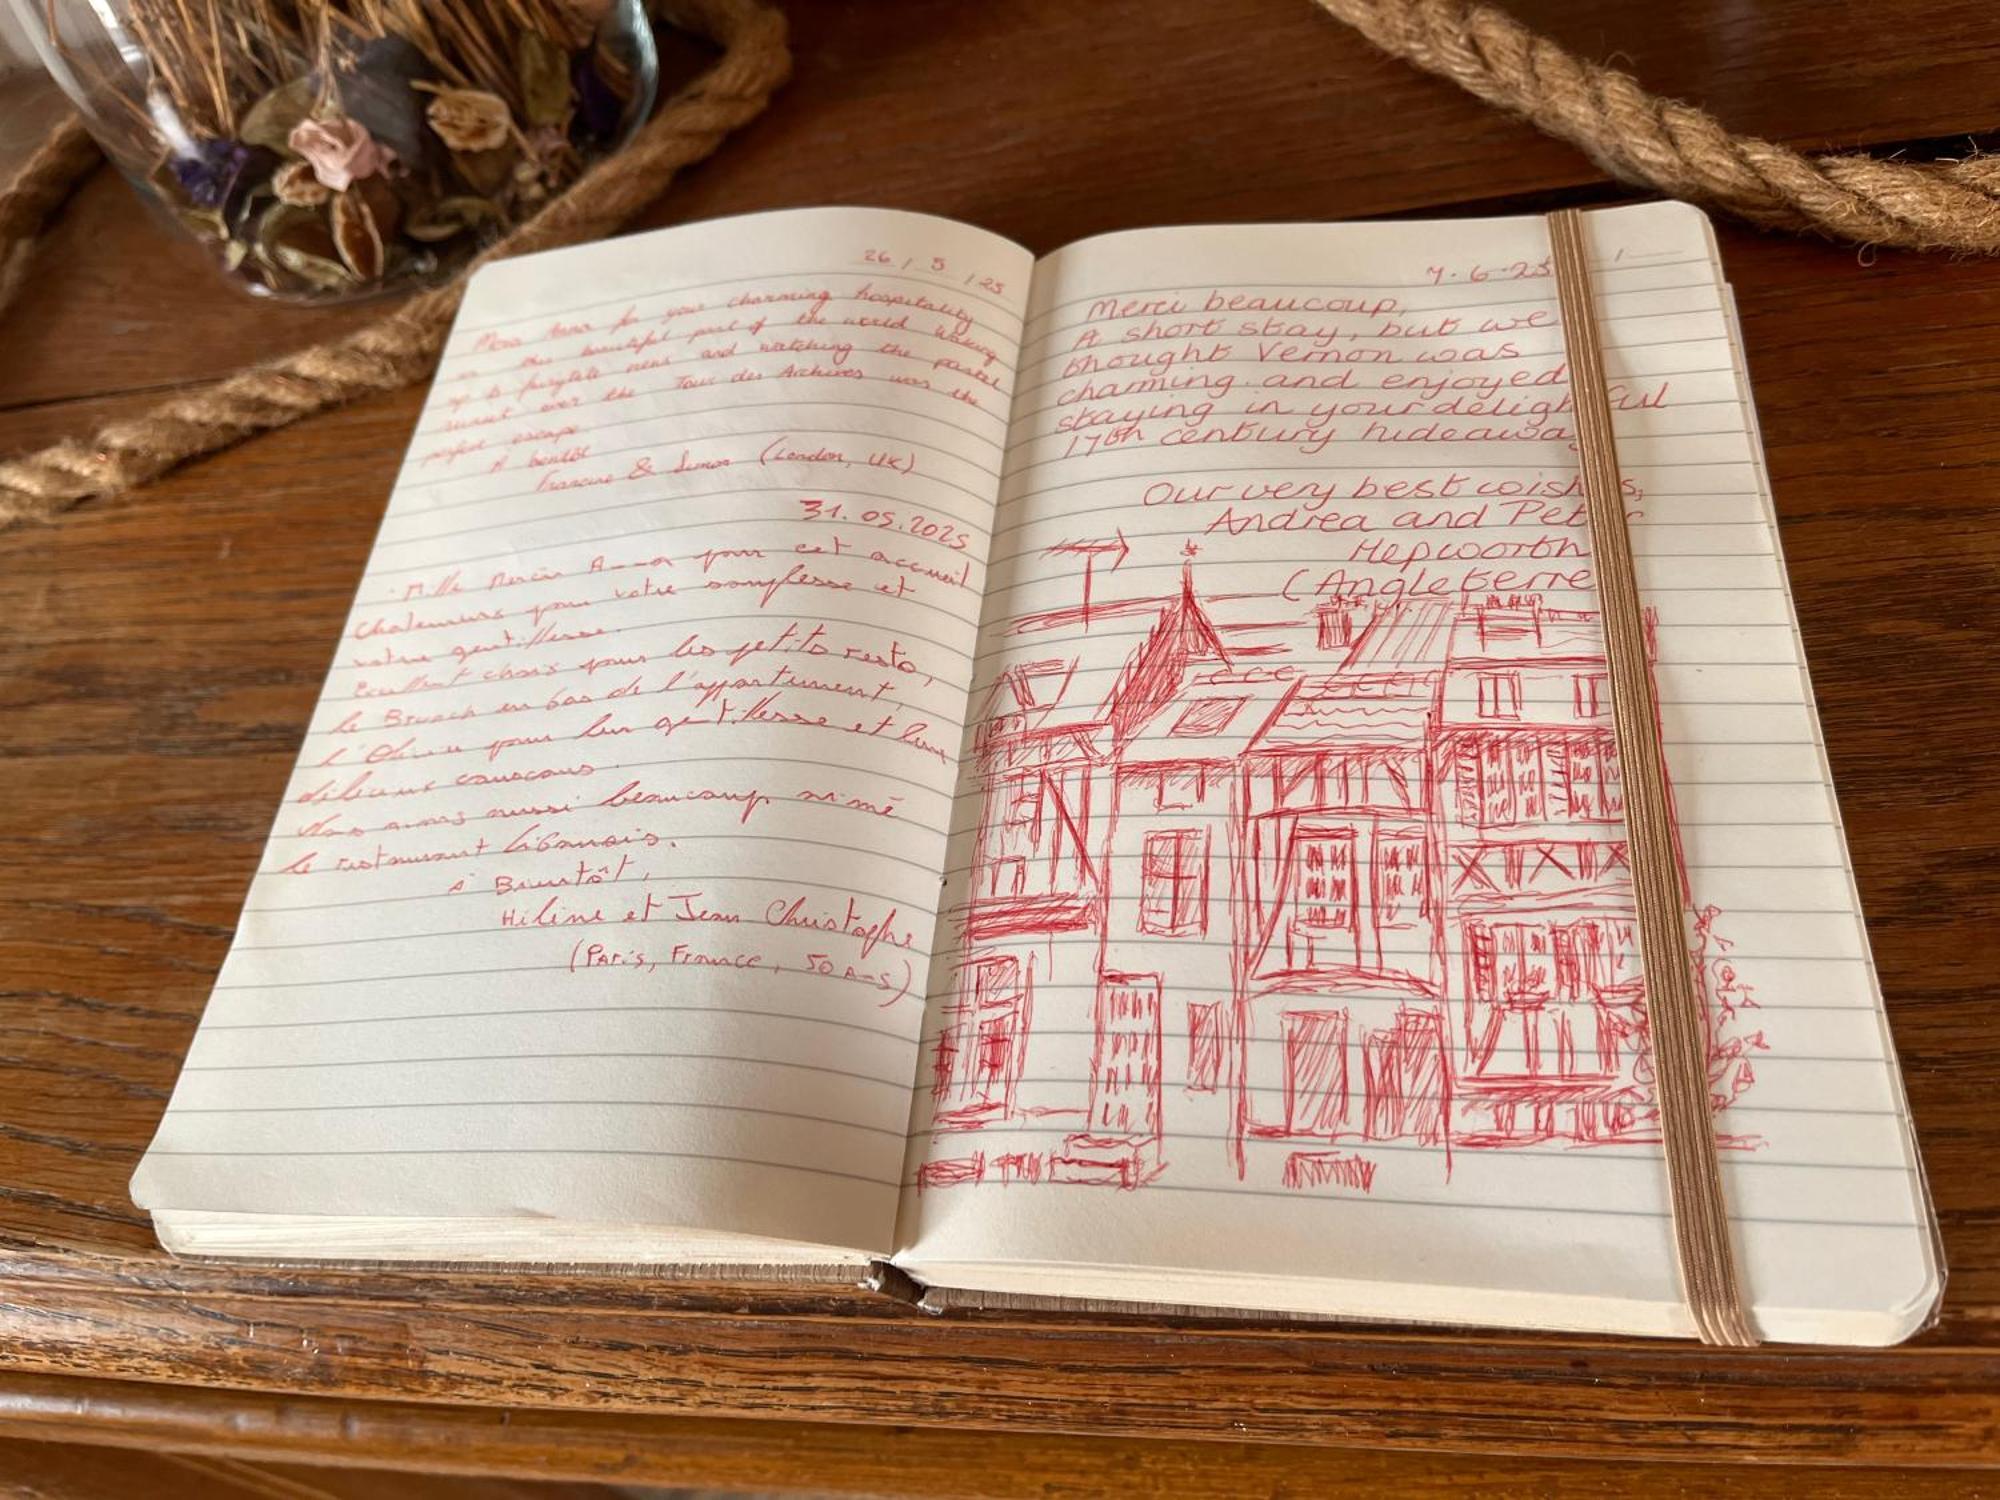 26 / 5 / 25
Merci Anna for your charming hospitality
in this beautiful part of the world waking
up to fairytale views and watching the pastel
sunset over the Tour des Archives was the
perfect escape
A bientôt
Francine & Simon (London, UK)
31.05.2025
Mille Mercis Anna pour cet accueil
chaleureux pour votre souplesse et
votre gentillesse.
Excellent choix pour les petits resto,
le Brunch en bas de l'appartement,
l' pour leur gentillesse et leur
délicieux couscous.
Nous avons aussi beaucoup aimé
le restaurant libanais.
à Bientôt,
Hélène et Jean Christophe
(Paris, France, 50 ans)
7.6.25
Merci beaucoup,
A short stay, but we
thought Vernon was
charming and enjoyed
staying in your delightful
17th century hideaway
Our very best wishes,
Andrea and Peter
Hepworth
(Angleterre